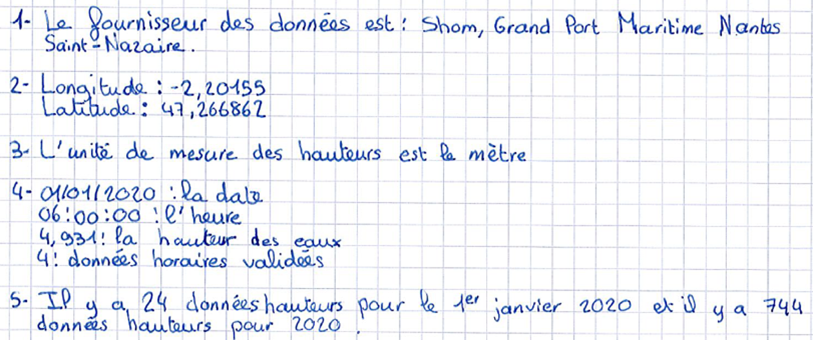 1- Le fournisseur des données est : Shom, Grand Port Maritime Nantes
Saint-Nazaire.
2- Longitude : -2,20155
Latitude : 47,266862
3- L'unité de mesure des hauteurs est le mètre
4- 01/01/2020 : la date
06:00:00 : l'heure
4,931 : la hauteur des eaux
4 : données horaires validées
5- Il y a 24 données hauteurs pour le 1er janvier 2020 et il y a 744
données hauteurs pour 2020.